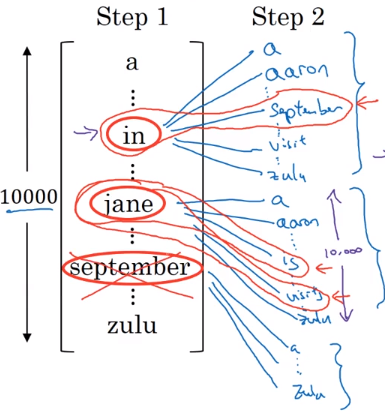 Step 1
Step 2
10000
a
in
jane
september
zulu
a
aaron
September
visit
zulu
a
aaron
is
visits
zulu
10,000
a
zulu